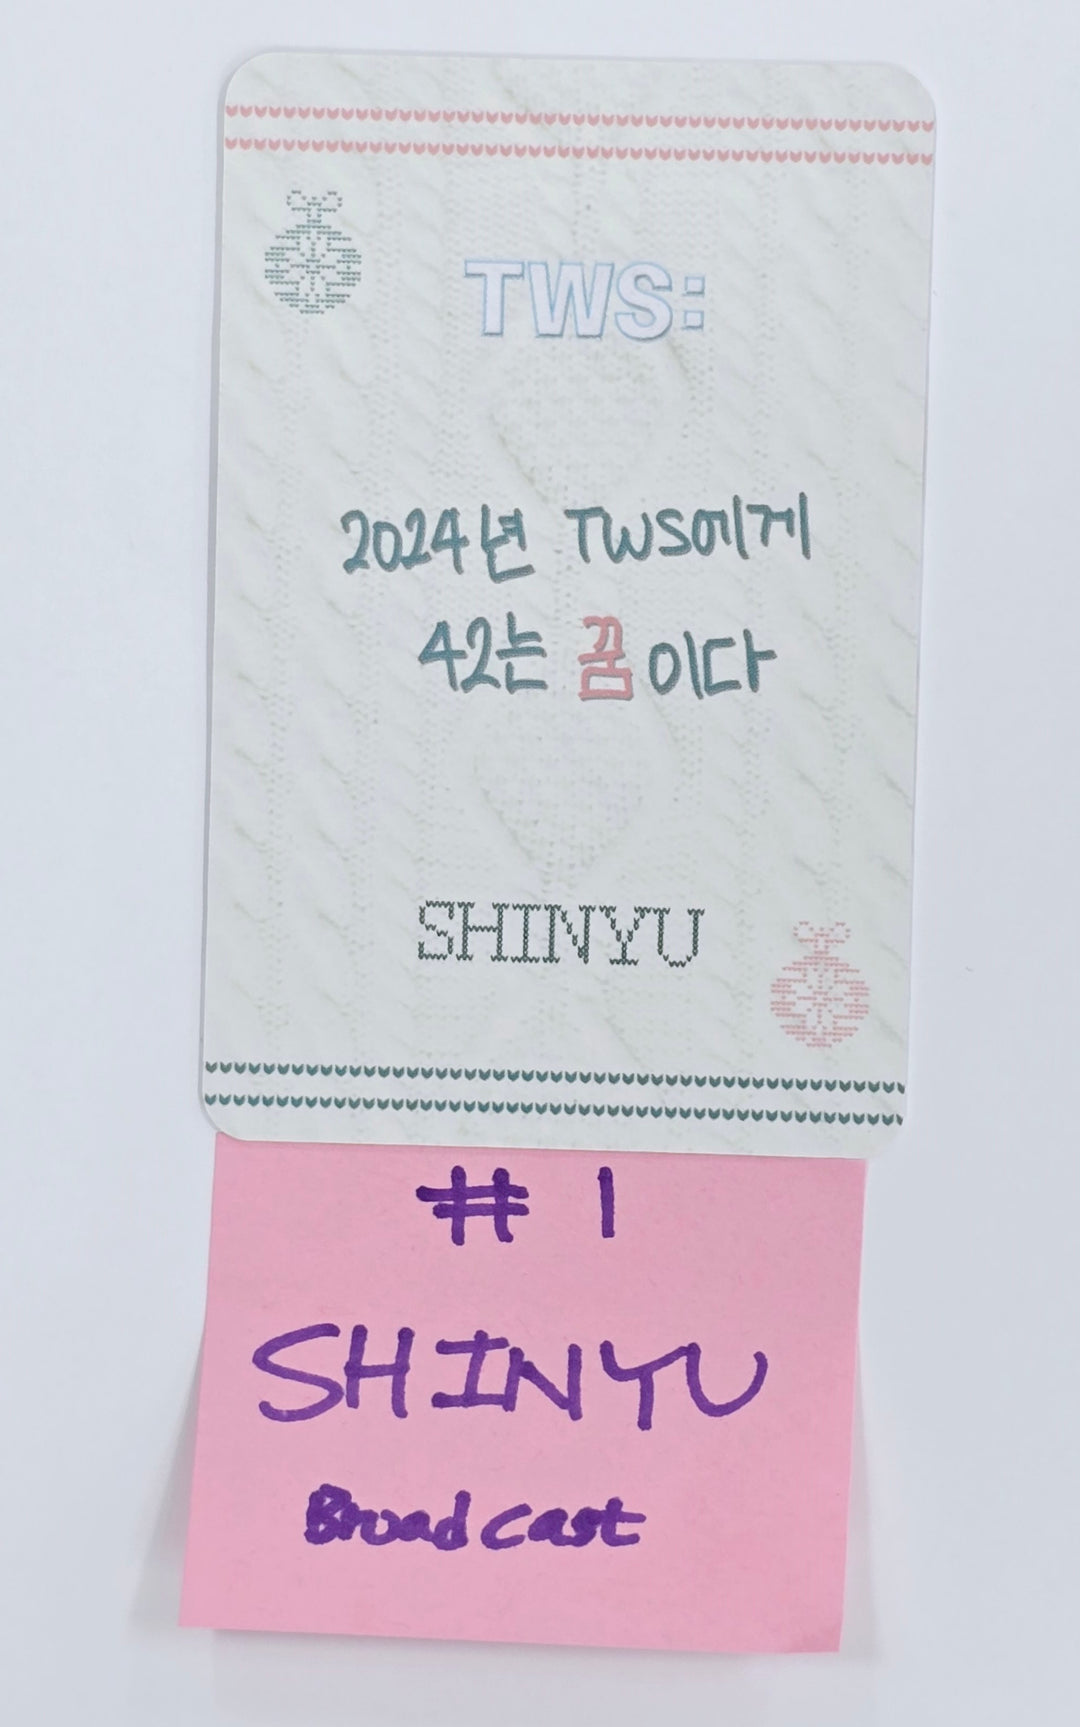 TWS:
2024년 TWS에게
42는 꿈이다
SHINYU
# 1
SHINYU
Broadcast